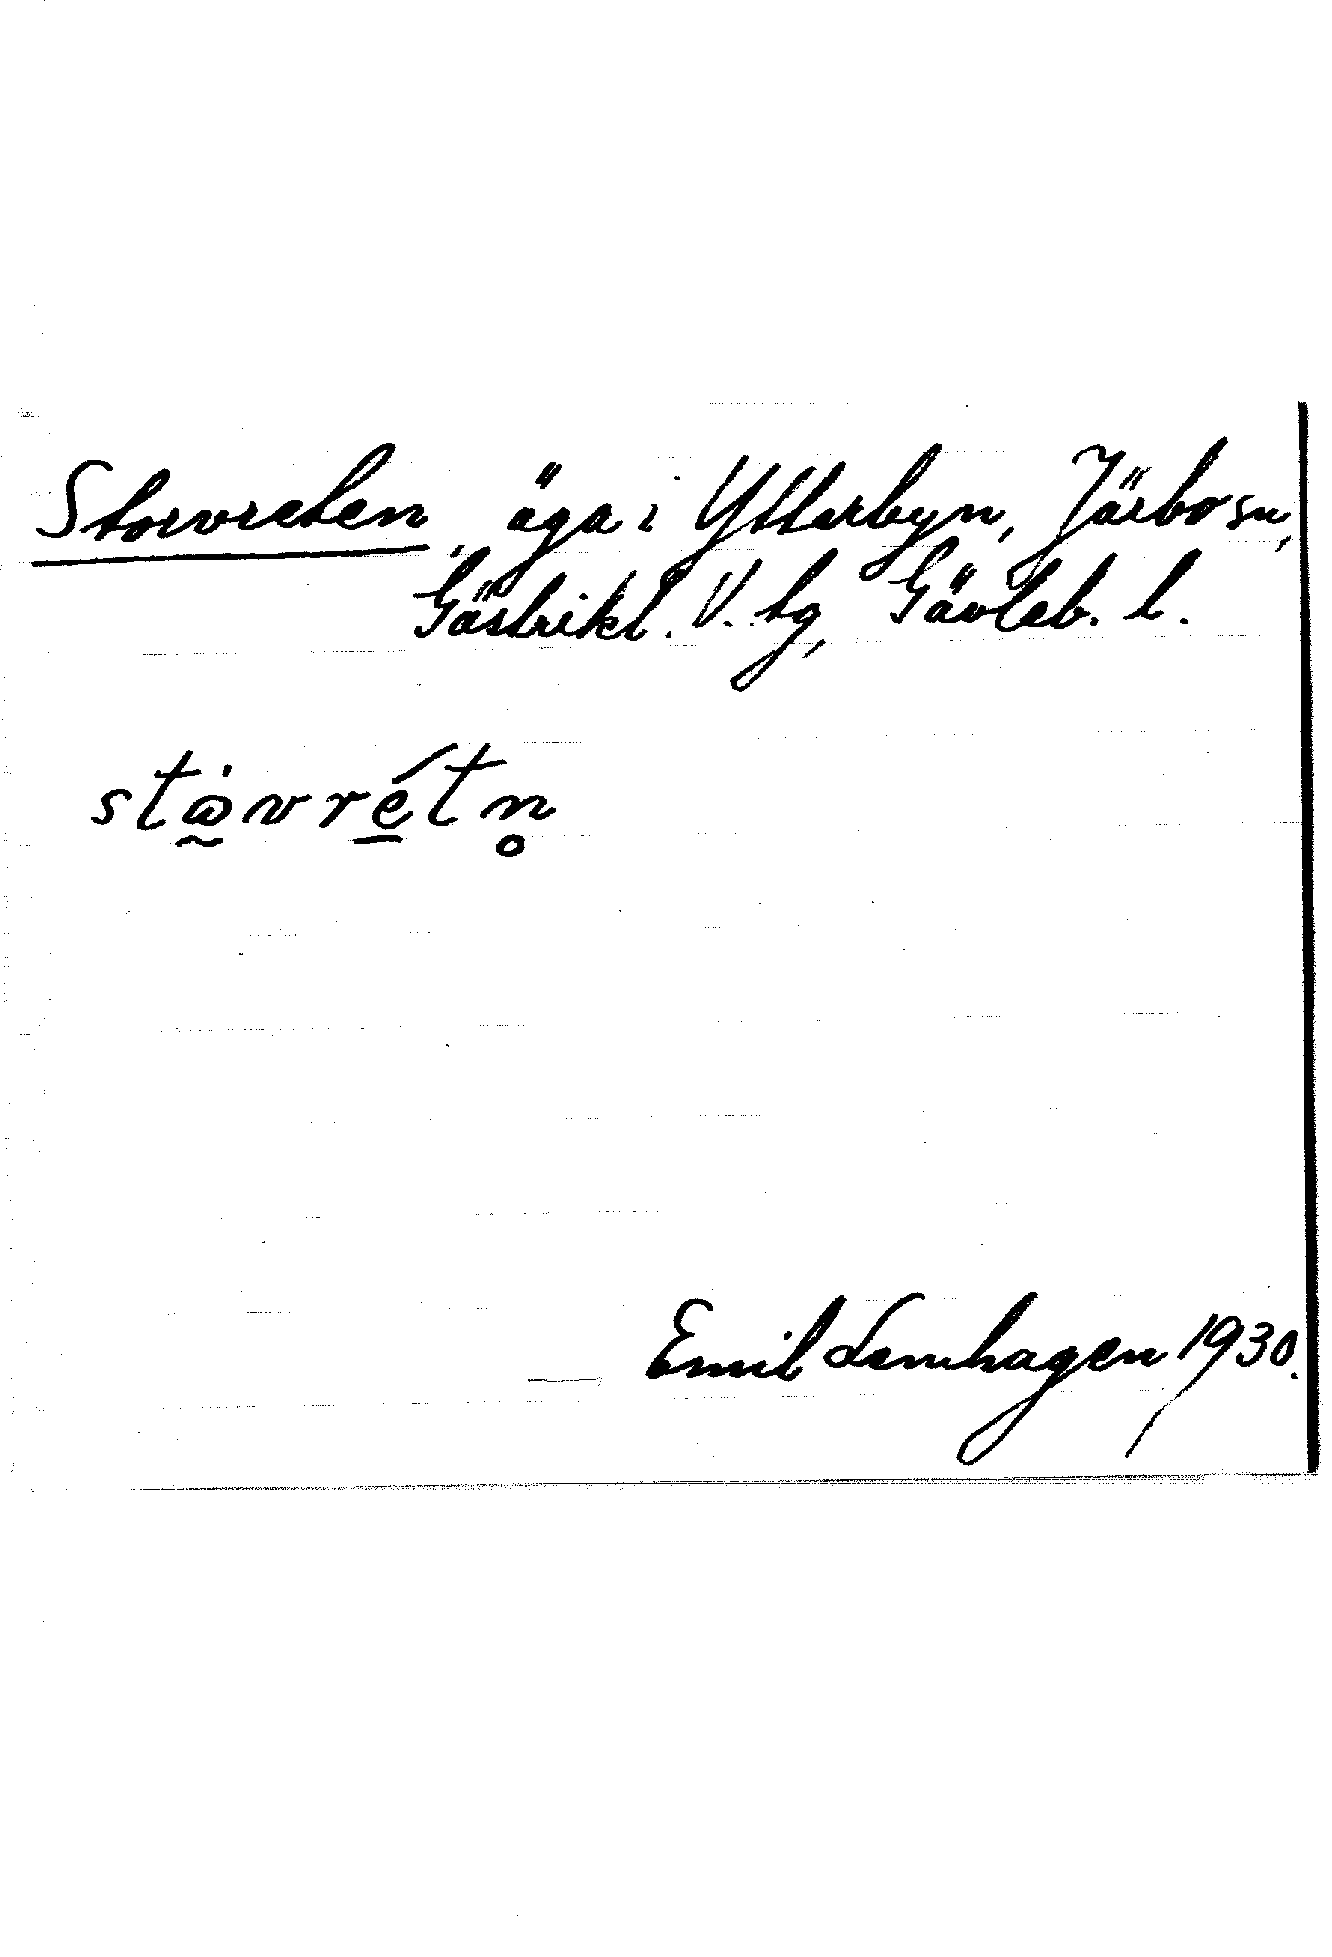 Storvreten, äga i Ytterbyn, Järbo sn,
Gästrikl. V. tg, Gävleb. l.
stὼ̰vré̱tn̥
Emil Lemhagen 1930.